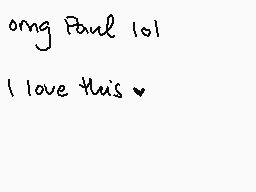 omg Paul lol
I love this ♥